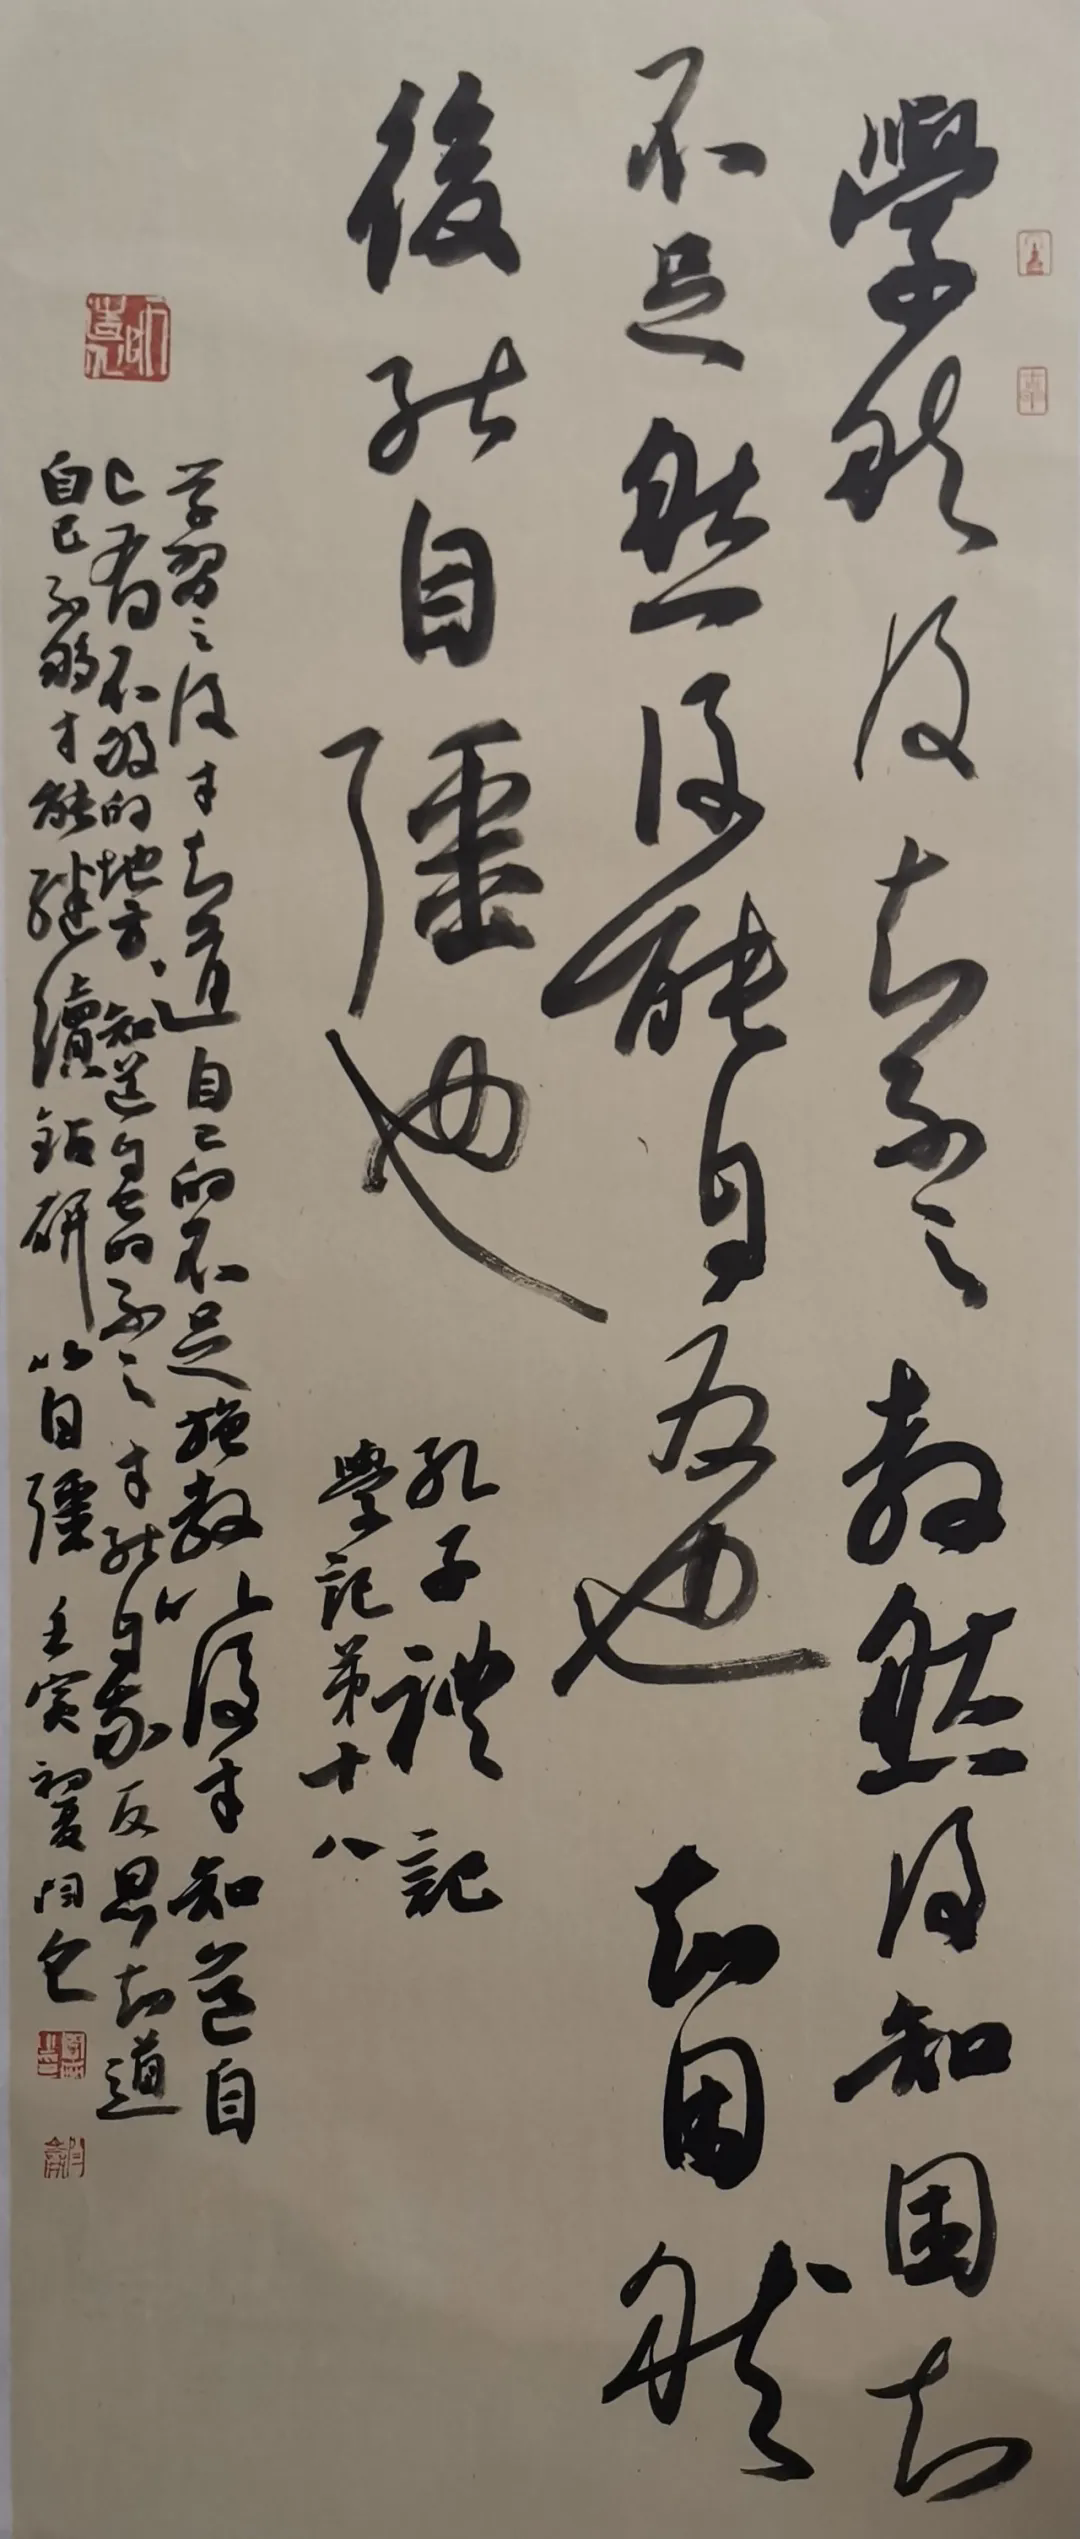 學然後知不足教然後知困知
不足然後能自反也知困然
後能自彊也
孔子禮記
學記第十八
学習之後才知道自己的不足施教以後才知道自
己有不够的地方知道自己的不足才能自我反思知道
自己不够才能継續钻研以自彊壬寅初夏